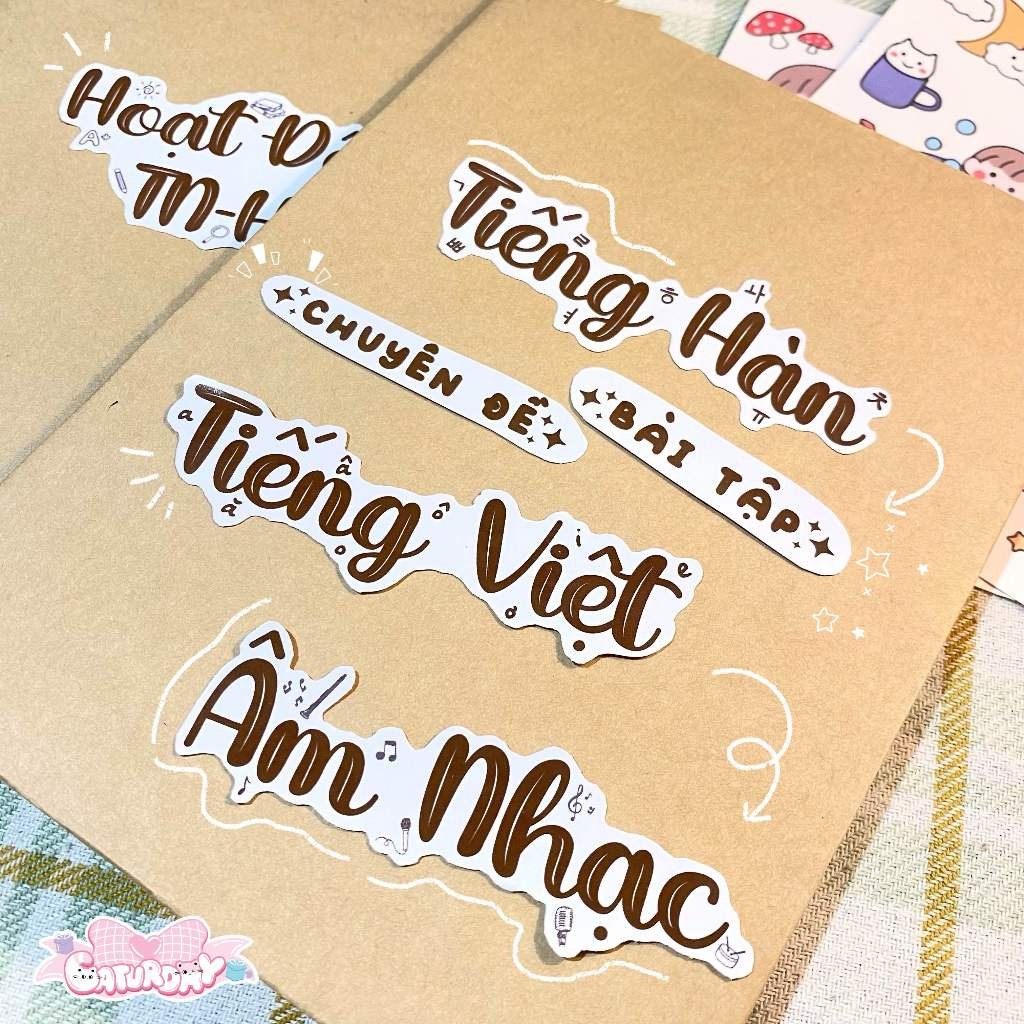 Hoạt Đ
TN-H
Tiếng Hàn
ㄱ ㄹ ㅃ ㅕ ㅎ ㅅㅏ ㅠ ㅊ
CHUYÊN ĐỀ
BÀI TẬP
Tiếng Việt
a ă â o ô ơ i e
Âm Nhạc
A
CATURDAY